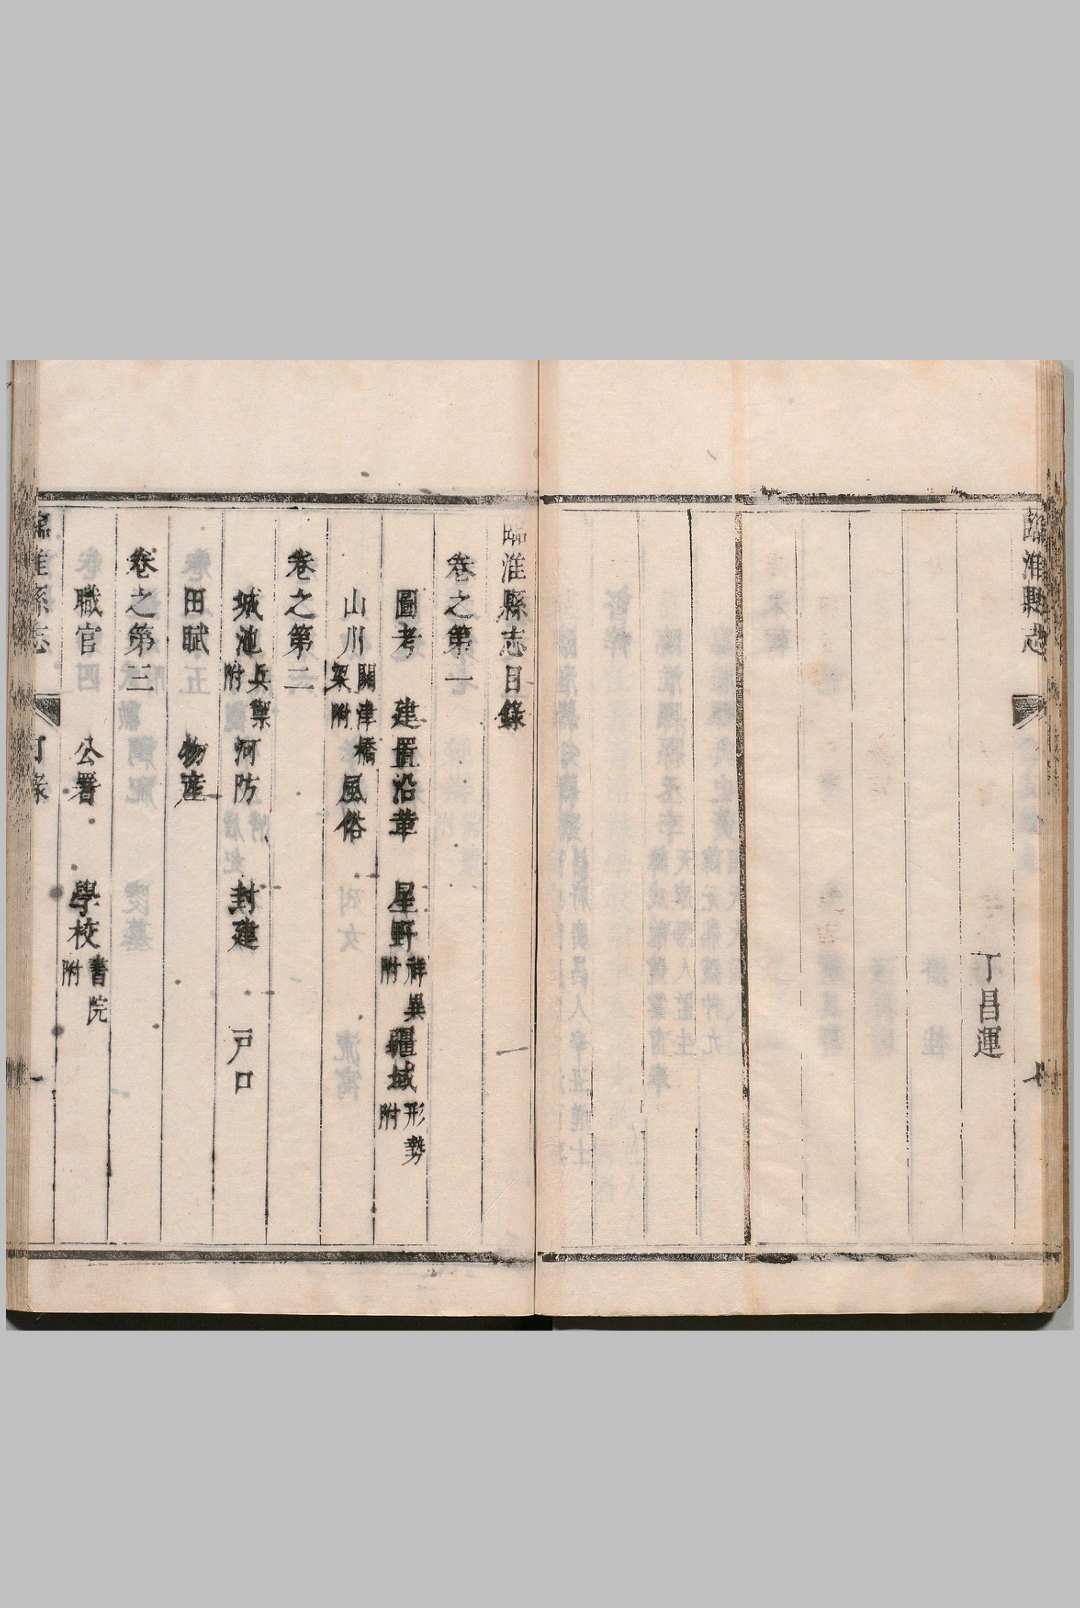 臨淮縣志
丁昌運
臨淮縣志目錄
卷之第一
圖考 建置沿革 星野祥異附 疆域形勢附
山川關津橋梁附 風俗
卷之第二
城池兵禦附 河防 封建 戶口
田賦 物產
卷之第三
職官 公署 學校書院附
臨淮縣志 目錄 一